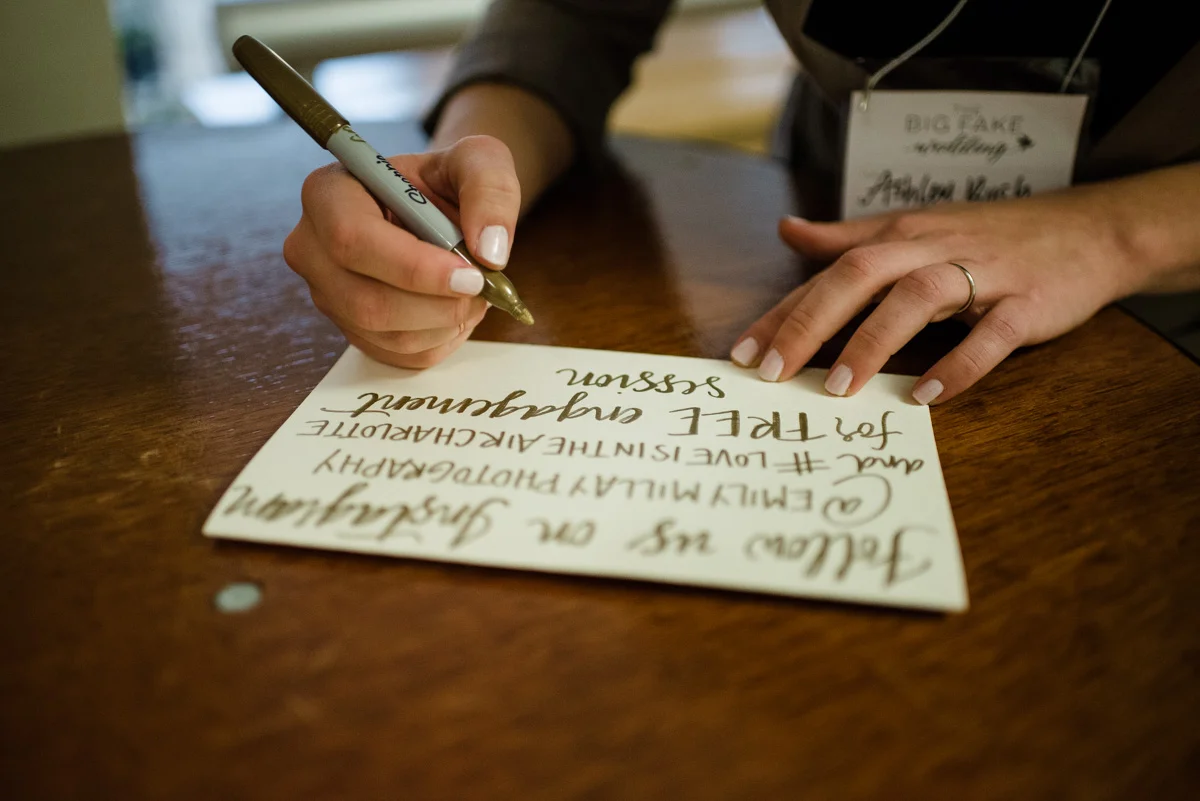 Sharpie
THE
BIG FAKE
wedding
Ashley
Follow us on Instagram
@EMILY MILLAY PHOTOGRAPHY
and #LOVEISINTHEAIRCHARLOTTE
for FREE engagement
session